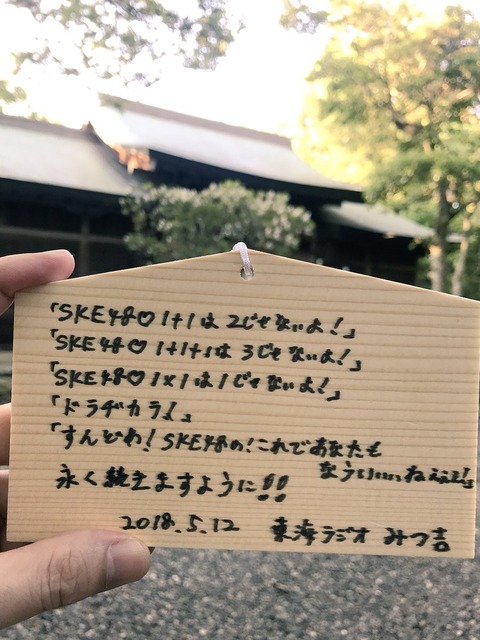 「SKE48♡1+1は2じゃないよ!」
「SKE48♡1+1+1は3じゃないよ!」
「SKE48♡1×1は1じゃないよ!」
「ドラヂカラ!」
「すんどめ!SKE48の!これであなたも
なうしいいぃねぇぇぇ!」
永く続きますように!!
2018.5.12 東海ラジオ みつ吉